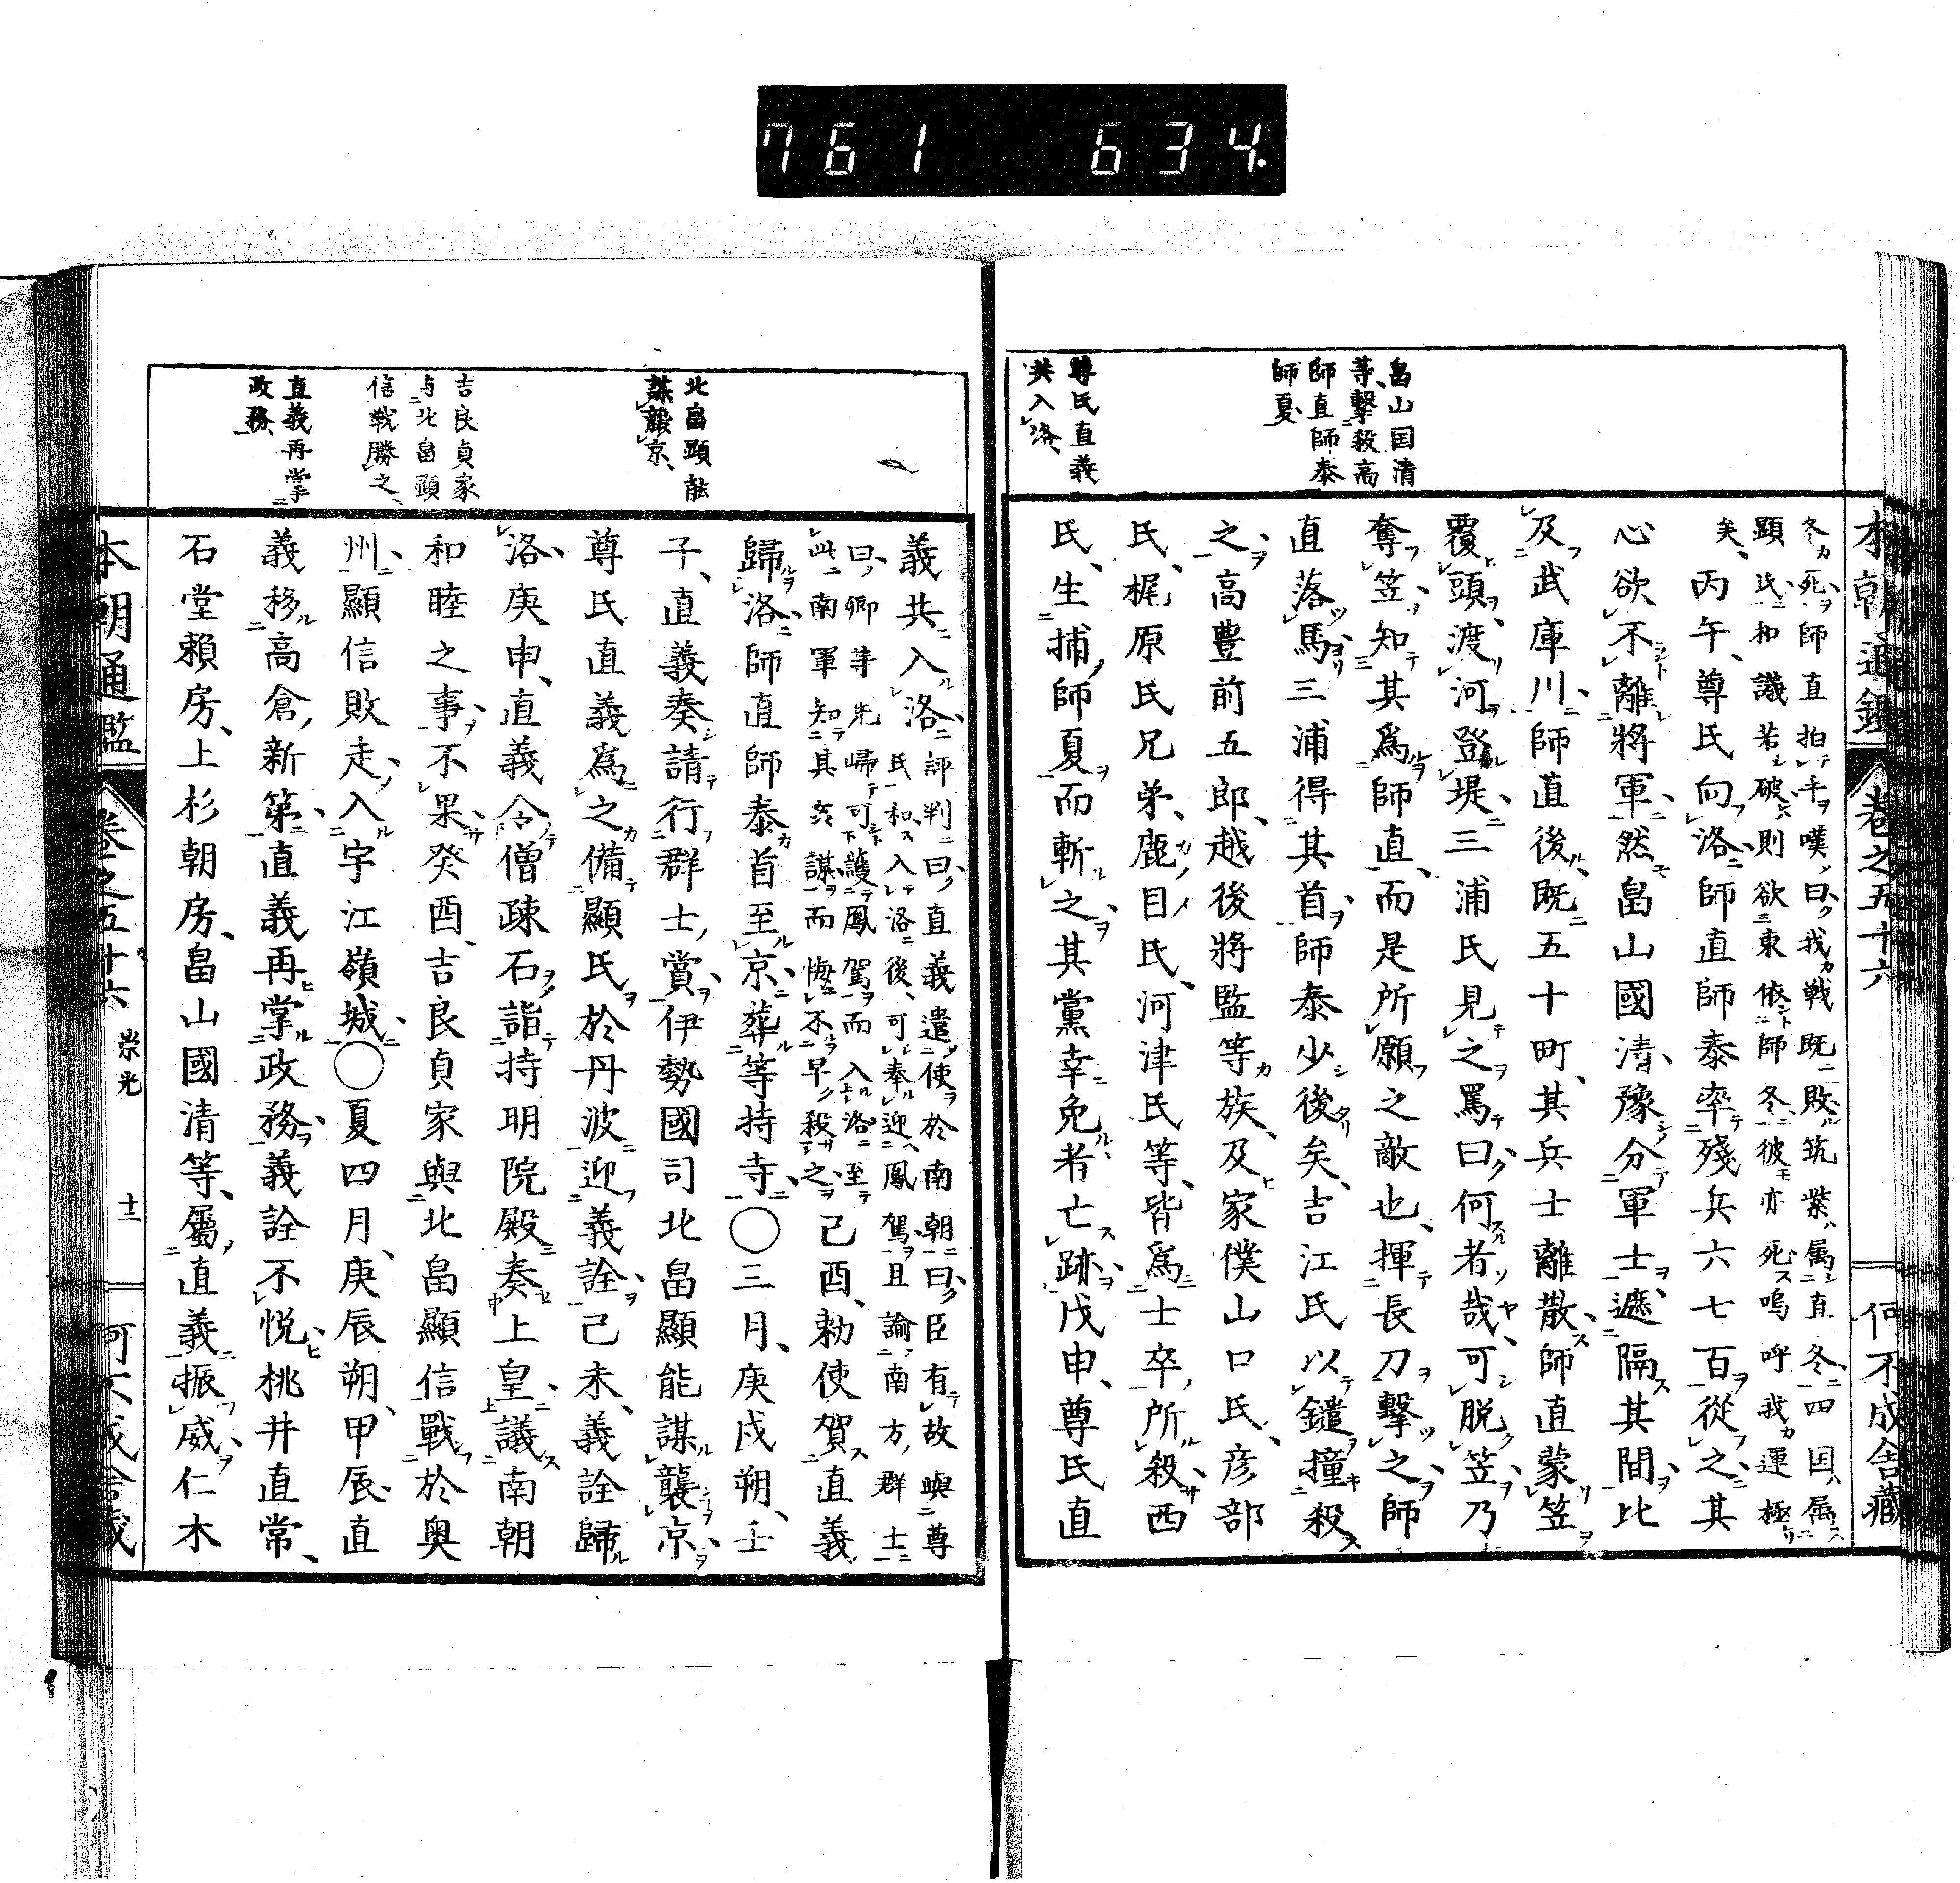 761 634.
本朝通鑑 卷之五十六 何不成舍藏
畠山国清
等擊殺高
師直師泰
師夏
尊氏直義
共入洛
冬死師直拍手嘆曰我戦既敗筑紫属直冬四国属
顕氏和議若破則欲東依師冬彼亦死嗚呼我運極
矣丙午尊氏向洛師直師泰率殘兵六七百從之其
心欲不離將軍然畠山國清豫分軍士遮隔其間比
及武庫川師直後既五十町其兵士離散師直蒙笠
覆頭渡河登堤三浦氏見之罵曰何者哉可脱笠乃
奪笠知其爲師直而是所願之敵也揮長刀擊之師
直落馬三浦得其首師泰少後矣吉江氏以鑓撞殺
之高豊前五郎越後將監等族及家僕山口氏彦部
氏梶原氏兄弟鹿目氏河津氏等皆爲士卒所殺西
氏生捕師夏而斬之其黨幸免者亡跡戊申尊氏直
北畠顕能
謀襲京
吉良貞家
与北畠顕
信戦勝之
直義再掌
政務
義共入洛
評判曰直義遣使於南朝曰臣有故與尊
氏和入洛後可奉迎鳳駕且諭南方群士
曰卿等先帰可護鳳駕而入洛至
此南軍知其謀而悔不早殺之
己酉勅使賀直義
歸洛師直師泰首至京葬等持寺〇三月庚戌朔壬
子直義奏請行群士賞伊勢國司北畠顯能謀襲京
尊氏直義爲之備顯氏於丹波迎義詮己未義詮歸
洛庚申直義令僧疎石詣持明院殿奏上皇議南朝
和睦之事不果癸酉吉良貞家與北畠顯信戰於奥
州顯信敗走入宇江嶺城〇夏四月庚辰朔甲辰直
義移高倉新第直義再掌政務義詮不悦桃井直常
石堂頼房上杉朝房畠山國清等屬直義振威仁木
本朝通鑑 卷之五十六 崇光 十二 何不成舍藏